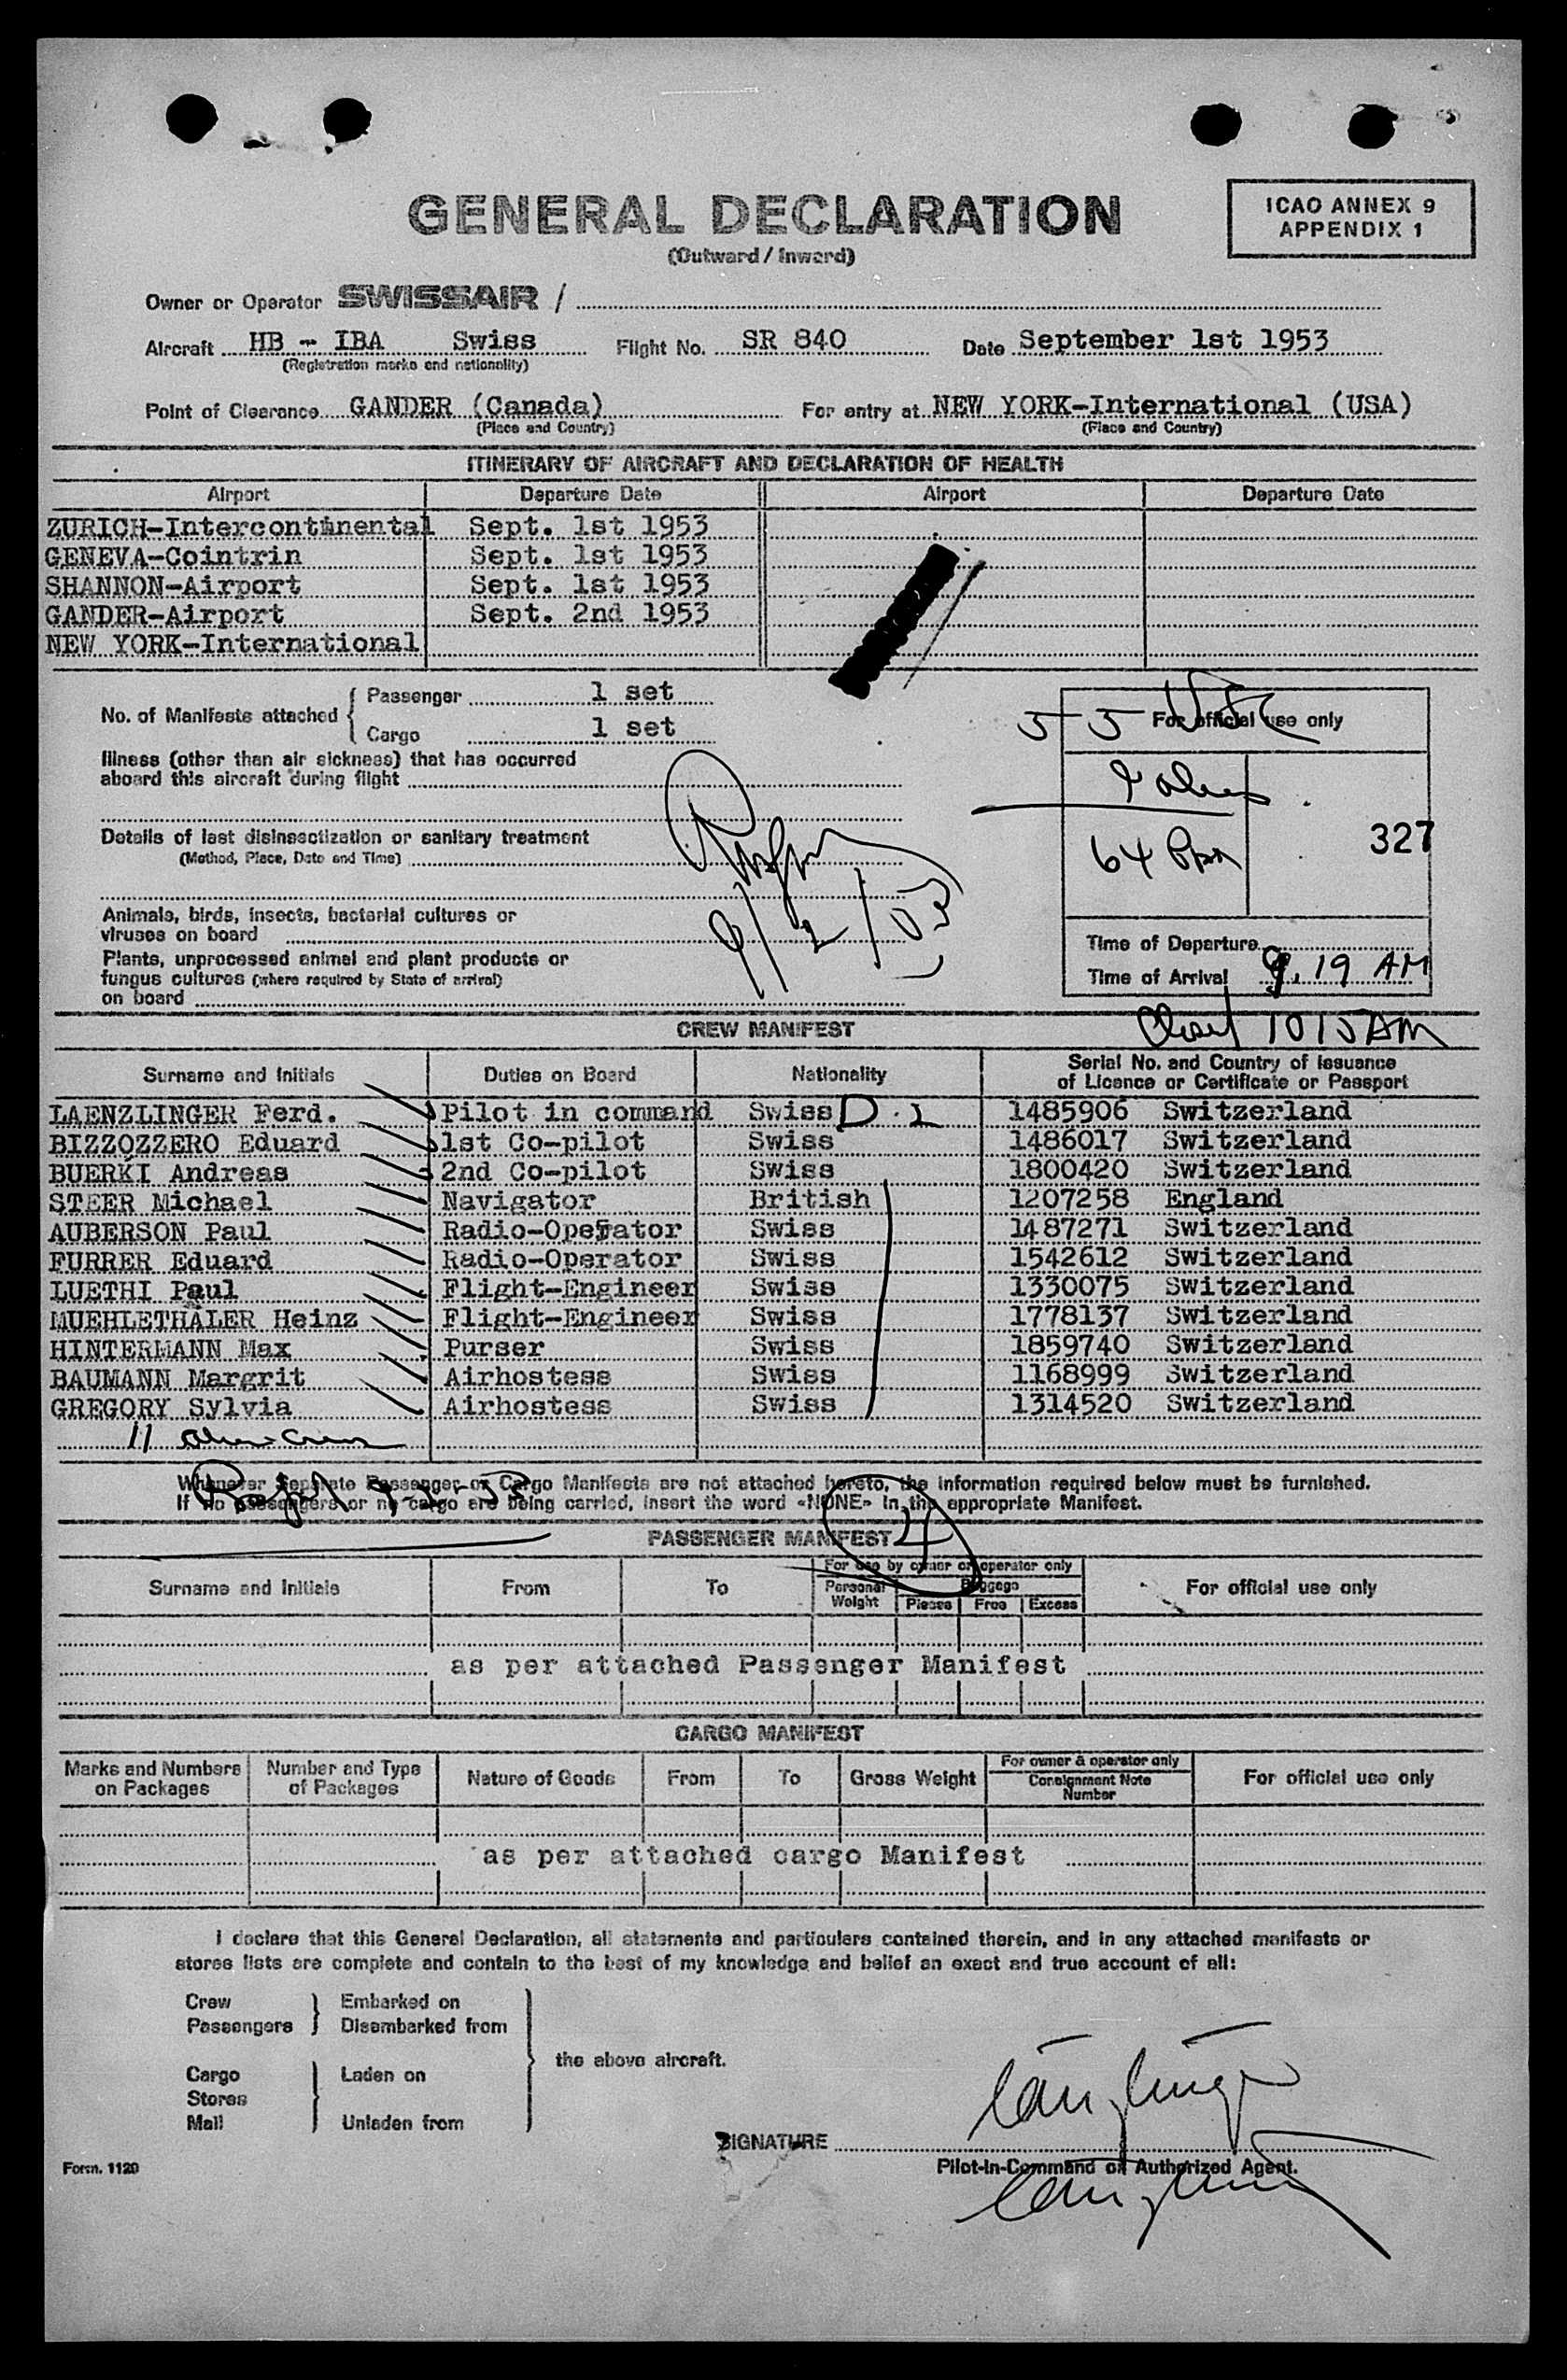 GENERAL DECLARATION
(Outward / Inward)
ICAO ANNEX 9
APPENDIX 1
Owner or Operator SWISSAIR /
Aircraft HB - IBA Swiss Flight No. SR 840 Date September 1st 1953
(Registration marks and nationality)
Point of Clearance GANDER (Canada) For entry at NEW YORK-International (USA)
(Place and Country) (Place and Country)
ITINERARY OF AIRCRAFT AND DECLARATION OF HEALTH
Airport Departure Date Airport Departure Date
ZURICH-Intercontinental Sept. 1st 1953
GENEVA-Cointrin Sept. 1st 1953
SHANNON-Airport Sept. 1st 1953
GANDER-Airport Sept. 2nd 1953
NEW YORK-International
No. of Manifests attached
Passenger 1 set
Cargo 1 set
55
For official use only
Illness (other than air sickness) that has occurred
aboard this aircraft during flight
Details of last disinsectization or sanitary treatment
(Method, Place, Date and Time)
64
327
9/2/53
Animals, birds, insects, bacterial cultures or
viruses on board
Plants, unprocessed animal and plant products or
fungus cultures (where required by State of arrival)
on board
Time of Departure
Time of Arrival 9.19 AM
1015 AM
CREW MANIFEST
Surname and Initials Duties on Board Nationality Serial No. and Country of Issuance
of Licence or Certificate or Passport
LAENZLINGER Ferd. Pilot in command Swiss D.L 1485906 Switzerland
BIZZOZZERO Eduard 1st Co-pilot Swiss 1486017 Switzerland
BUERKI Andreas 2nd Co-pilot Swiss 1800420 Switzerland
STEER Michael Navigator British 1207258 England
AUBERSON Paul Radio-Operator Swiss 1487271 Switzerland
FURRER Eduard Radio-Operator Swiss 1542612 Switzerland
LUETHI Paul Flight-Engineer Swiss 1330075 Switzerland
MUEHLETHALER Heinz Flight-Engineer Swiss 1778137 Switzerland
HINTERMANN Max Purser Swiss 1859740 Switzerland
BAUMANN Margrit Airhostess Swiss 1168999 Switzerland
GREGORY Sylvia Airhostess Swiss 1314520 Switzerland
11
Whenever Separate Passenger or Cargo Manifests are not attached hereto, the information required below must be furnished.
If no passengers or no cargo are being carried, insert the word «NONE» in the appropriate Manifest.
PASSENGER MANIFEST 4
Surname and Initials From To For use by owner or operator only For official use only
Personal Weight Baggage
Pieces Free Excess
as per attached Passenger Manifest
CARGO MANIFEST
Marks and Numbers on Packages Number and Type of Packages Nature of Goods From To Gross Weight For owner & operator only For official use only
Consignment Note Number
as per attached cargo Manifest
I declare that this General Declaration, all statements and particulars contained therein, and in any attached manifests or
stores lists are complete and contain to the best of my knowledge and belief an exact and true account of all:
Crew Embarked on
Passengers Disembarked from
the above aircraft.
Cargo Laden on
Stores
Mail Unladen from
SIGNATURE
Form. 1120
Pilot-in-Command or Authorized Agent.